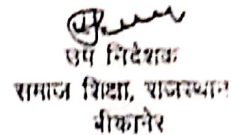 उप निदेशक
समाज शिक्षा, राजस्थान
बीकानेर